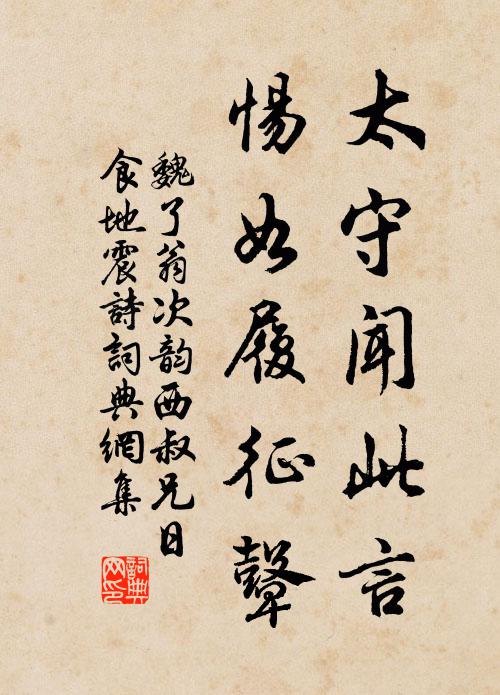 太守聞此言
惕如履征鼙
魏了翁次韵西叔兄日
食地震詩詞典網集
詞典
网印